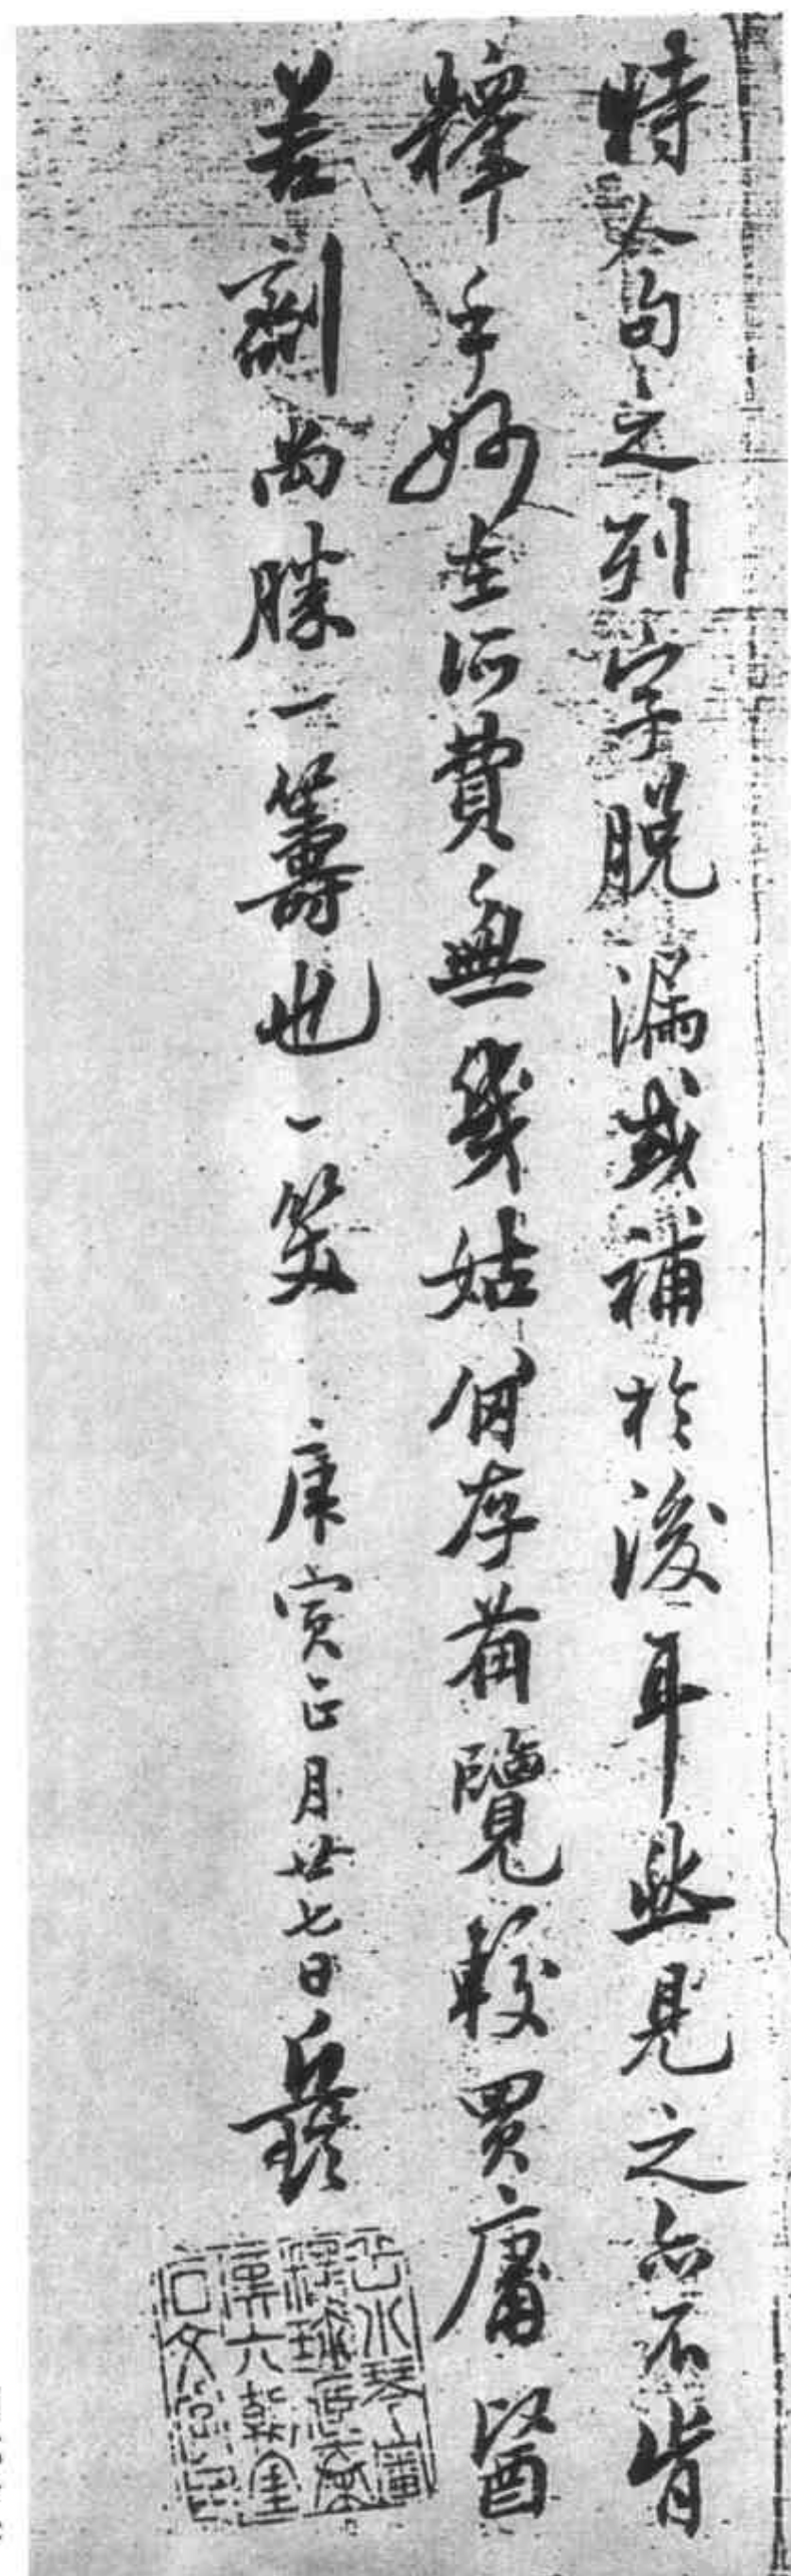 特令句之列字脱漏或补於後耳此見之亦不肯
釋手好在所費無幾姑留存省覽較買庸醫
若劑尚勝一籌也一笑 庚寅正月廿七日